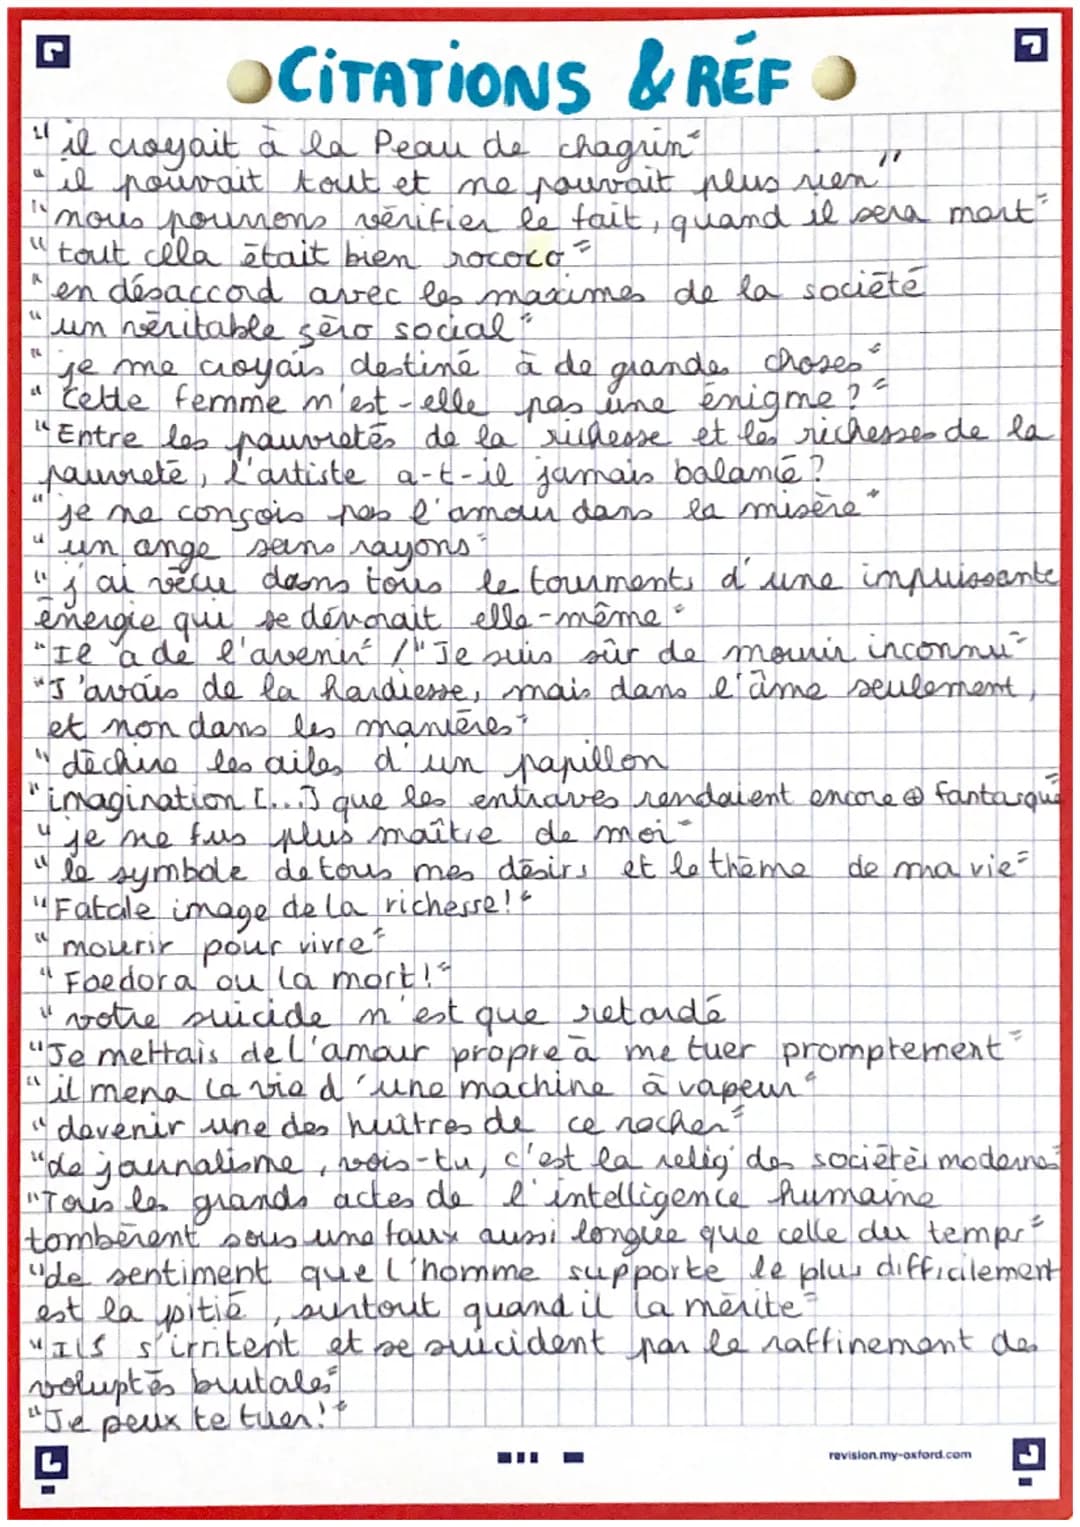 CITATIONS & RÉF
"il croyait à la Peau de chagrin"
"il pouvait tout et ne pouvait plus rien"
"nous pourrons vérifier le fait, quand il sera mort"
"tout cela était bien rococo"
"en désaccord avec les maximes de la société
"un véritable zéro social"
"je me croyais destiné à de grandes choses"
"Cette femme n'est-elle pas une énigme?"
"Entre les pauvretés de la richesse et les richesses de la
pauvreté, l'artiste a-t-il jamais balancé?
"je ne conçois pas l'amour dans la misère"
"un ange sans rayons"
"j'ai vécu dans tous le tourments d'une impuissante
énergie qui se dévorait elle-même"
"Il a de l'avenir" / "Je suis sûr de mourir inconnu"
"J'avais de la hardiesse, mais dans l'âme seulement,
et non dans les manières"
"déchire les ailes d'un papillon
"imagination [...] que les entraves rendaient encore ⊕ fantasque"
"je ne fus plus maître de moi"
"le symbole de tous mes désirs et le thème de ma vie"
"Fatale image de la richesse!"
"mourir pour vivre"
"Foedora ou la mort!"
"votre suicide n'est que retardé
"Je mettais de l'amour propre à me tuer promptement"
"il mena la vie d'une machine à vapeur"
"devenir une des huîtres de ce rocher"
"de journalisme, vois-tu, c'est la relig° des sociétés modernes"
"Tous les grands actes de l'intelligence humaine
tombèrent sous une faux aussi longue que celle du temps"
"de sentiment que l'homme supporte le plus difficilement
est la pitié, surtout quand il la mérite"
"Ils s'irritent et se suicident par le raffinement des
voluptés brutales"
"Je peux te tuer!"
revision.my-oxford.com